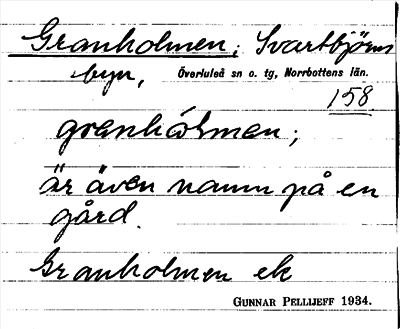 Granholmen, Svartbjörns
byn, Överluleå sn o. tg, Norrbottens län.
158
granhólmen;
är även namn på en
gård.
Granholmen ek
GUNNAR PELLIJEFF 1934.